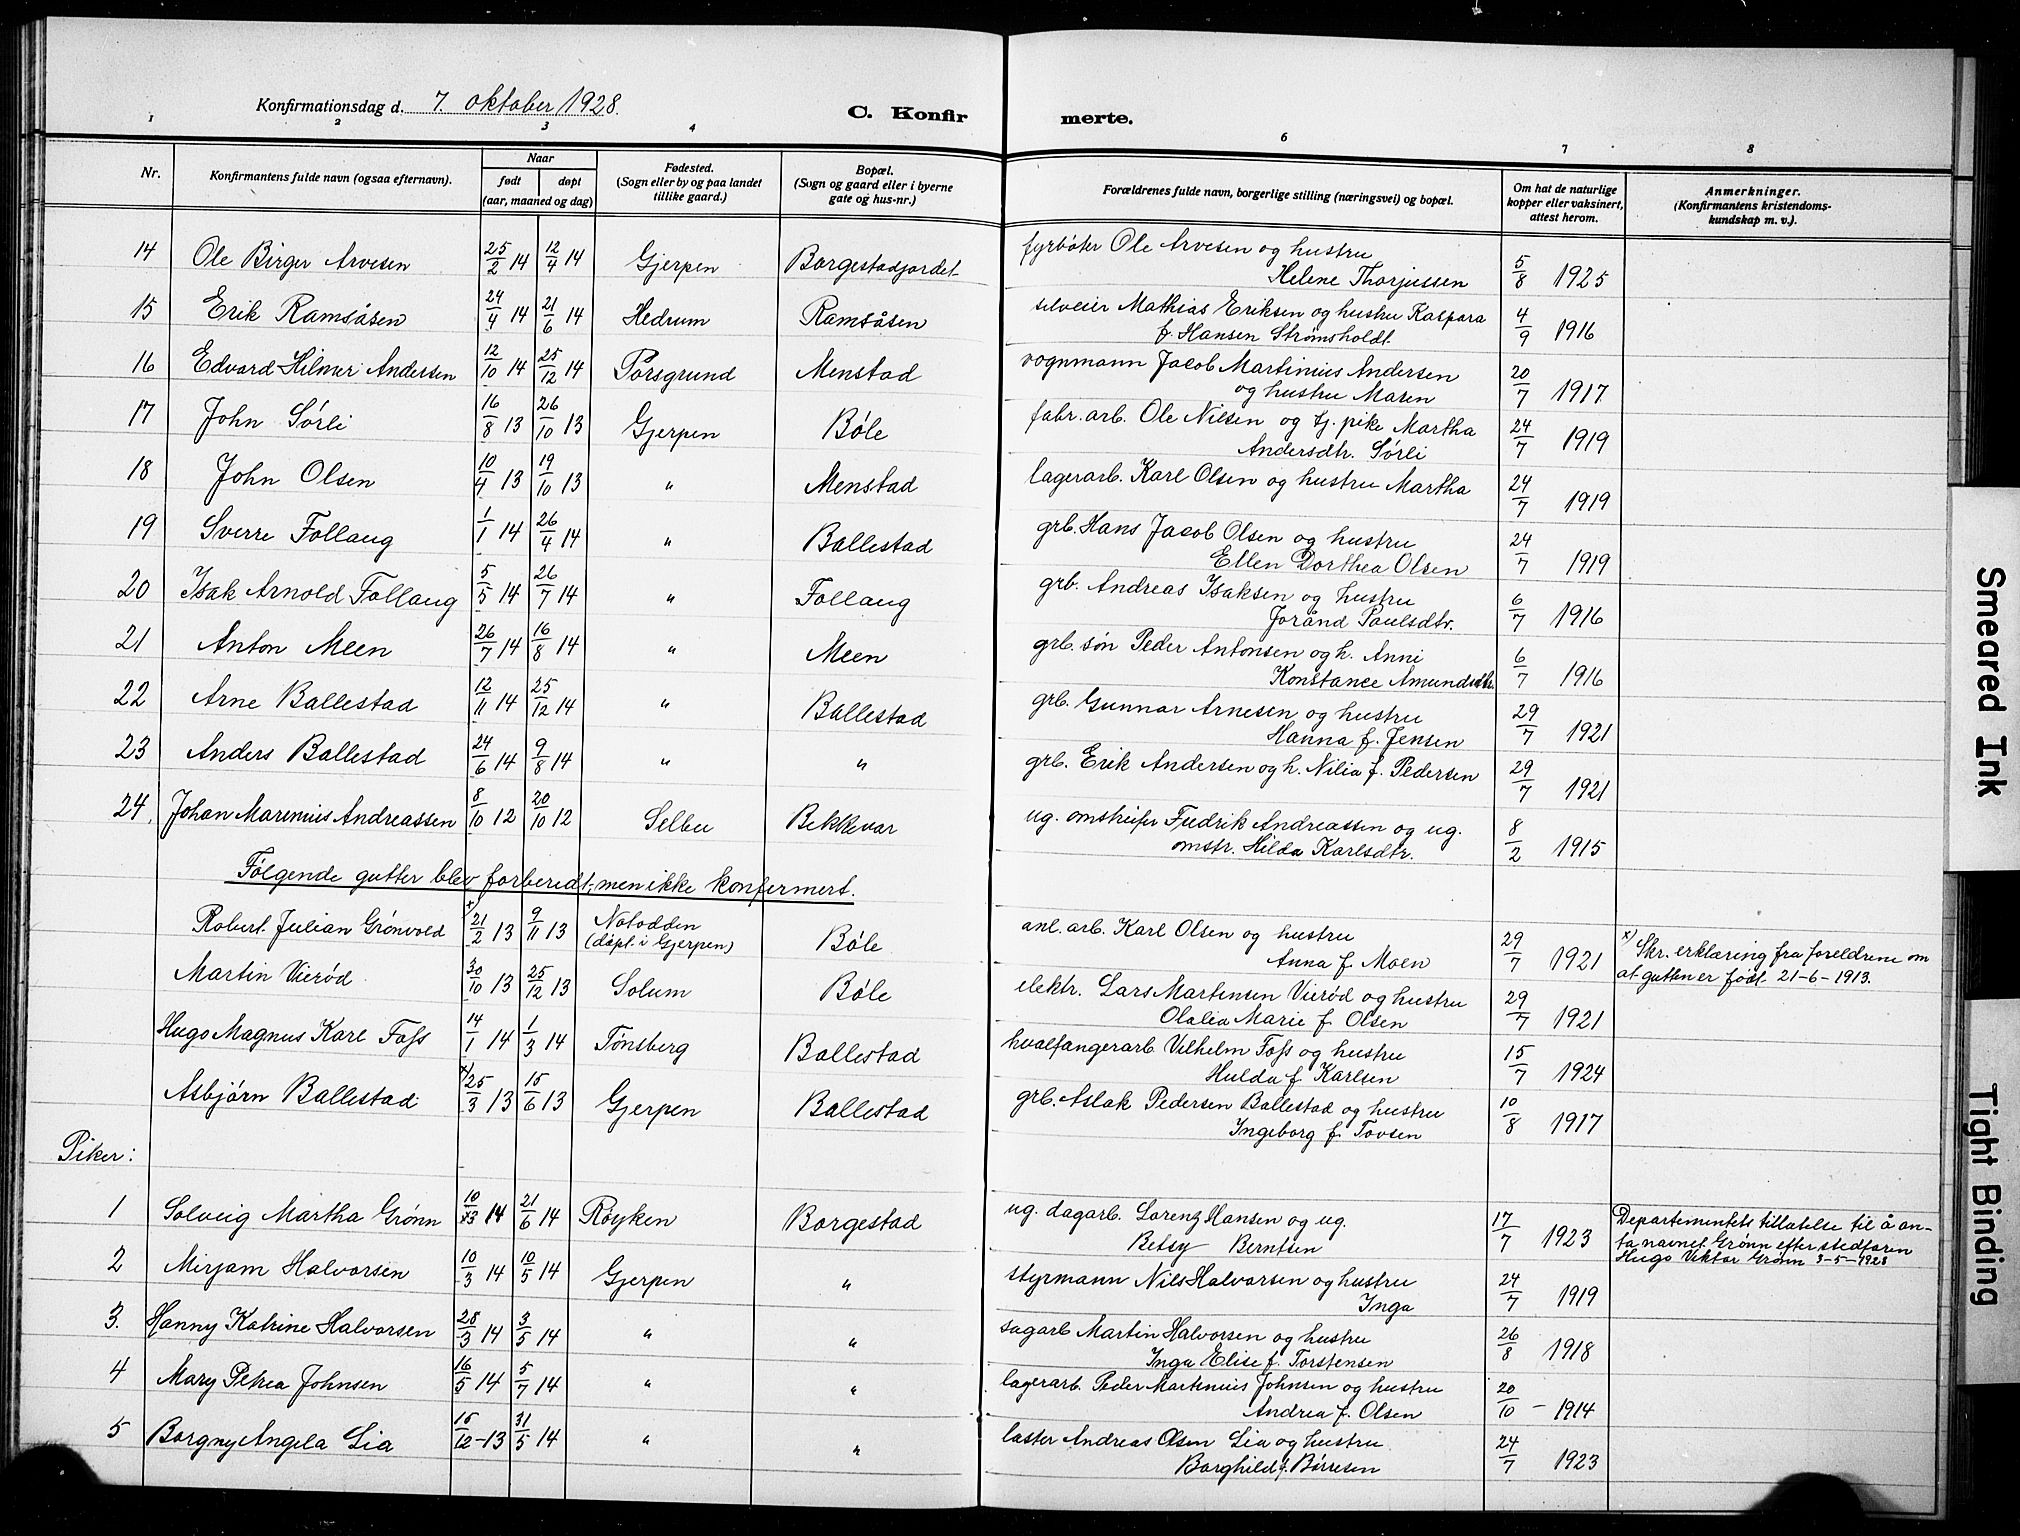 Konfirmationsdag d. 7. oktober 1928.
C. Konfirmerte.
1 2 3 4 6 7 8
Nr.
Konfirmantens fulde navn (ogsaa efternavn).
Naar
født døpt
(aar, maaned og dag)
Fødested.
(Sogn eller by og paa landet
tillike gaard.)
Bopæl.
(Sogn og gaard eller i byerne
gate og hus-nr.)
Forældrenes fulde navn, borgerlige stilling (næringsvei) og bopæl.
Om hat de naturlige
kopper eller vaksinert,
attest herom.
Anmerkninger.
(Konfirmantens kristendoms-
kundskap m. v.).
14 Ole Birger Arvesen 25/2 14 12/4 14 Gjerpen Borgestadjordet fyrbøter Ole Arvesen og hustru
Helene Thorjussen 5/8 1925
15 Erik Ramsåsen 24/4 14 21/6 14 Hedrum Ramsåsen selveier Mathias Eriksen og hustru Kaspara
f. Hansen Strømsholdt. 4/9 1916
16 Edvard Hilmer Andersen 12/10 14 25/12 14 Porsgrund Menstad vognmann Jacob Martinius Andersen
og hustru Maren 20/7 1917
17 John Sørli 16/8 13 26/10 13 Gjerpen Bøle fabr. arb. Ole Nilsen og tj. pike Martha
Andersdtr. Sørli 24/7 1919
18 John Olsen 10/4 13 19/10 13 " Menstad lagerarb. Karl Olsen og hustru Martha
24/7 1919
19 Sverre Follaug 1/1 14 26/4 14 " Ballestad grb. Hans Jacob Olsen og hustru
Ellen Dorthea Olsen 24/7 1919
20 Isak Arnold Follaug 5/5 14 26/7 14 " Follaug grb. Andreas Isaksen og hustru
Jorånd Paulsdtr. 6/7 1916
21 Anton Meen 26/7 14 16/8 14 " Meen grb. søn Peder Antonsen og h. Anni
Konstance Amundsdtr. 6/7 1916
22 Arne Ballestad 12/11 14 25/12 14 " Ballestad grb. Gunnar Arnesen og hustru
Hanna f. Jensen 29/7 1921
23 Anders Ballestad 24/6 14 9/8 14 " " grb. Erik Andersen og h. Nilia f. Pedersen 29/7 1921
24. Johan Marenius Andreassen 8/10 12 20/10 12 Selbu Bekkevar ug. omstreifer Fredrik Andreassen og ug.
omstr. Hilda Karlsdtr. 8/2 1915
Følgende gutter blev forberedt, men ikke konfermert.
Robert Julian Grønvold x) 21/2 13 9/11 13 Notodden
(døpt i Gjerpen) Bøle anl. arb. Karl Olsen og hustru
Anna f. Moen 29/7 1921 x) Skr. erklæring fra foreldrene om
at gutten er født 21-6-1913.
Martin Vierød 30/10 13 25/12 13 Solum Bøle elektr. Lars Martinsen Vierød og hustru
Olalia Marie f. Olsen 29/7 1921
Hugo Magnus Karl Foss 14/1 14 1/3 14 Tønsberg Ballestad hvalfangerarb. Vilhelm Foss og hustru
Hulda f. Karlsen 15/7 1924
Asbjørn Ballestad x) 25/3 13 15/6 13 Gjerpen Ballestad grb. Aslak Pedersen Ballestad og hustru
Ingeborg f. Tovsen 10/8 1917
Piker:
1 Solveig Martha Grønn 10/3 14 21/6 14 Røyken Borgestad ug. dagarb. Lorenz Hansen og ug.
Betsy Berntsen 17/7 1923 Departementets tillatelse til å an-
ta navnet Grønn efter stedfaren
Hugo Viktor Grønn 3-5-1928
2 Mirjam Halvorsen 10/3 14 10/5 14 Gjerpen " styrmann Nils Halvorsen og hustru
Inga 24/7 1919
3. Hanny Katrine Halvorsen 28/3 14 3/5 14 " " sagarb. Martin Halvorsen og hustru
Inga Elise f. Torstensen 26/8 1918
4 Mary Petrea Johnsen 16/5 14 5/7 14 " " lagerarb. Peder Martinius Johnsen og hustru
Andrea f. Olsen 20/10 - 1914
5 Borgny Angela Lia 15/12 - 13 31/5 14 " " laster Andreas Olsen Lia og hustru
Borghild f. Børresen 24/7 1923
Smeared Ink
Tight Binding